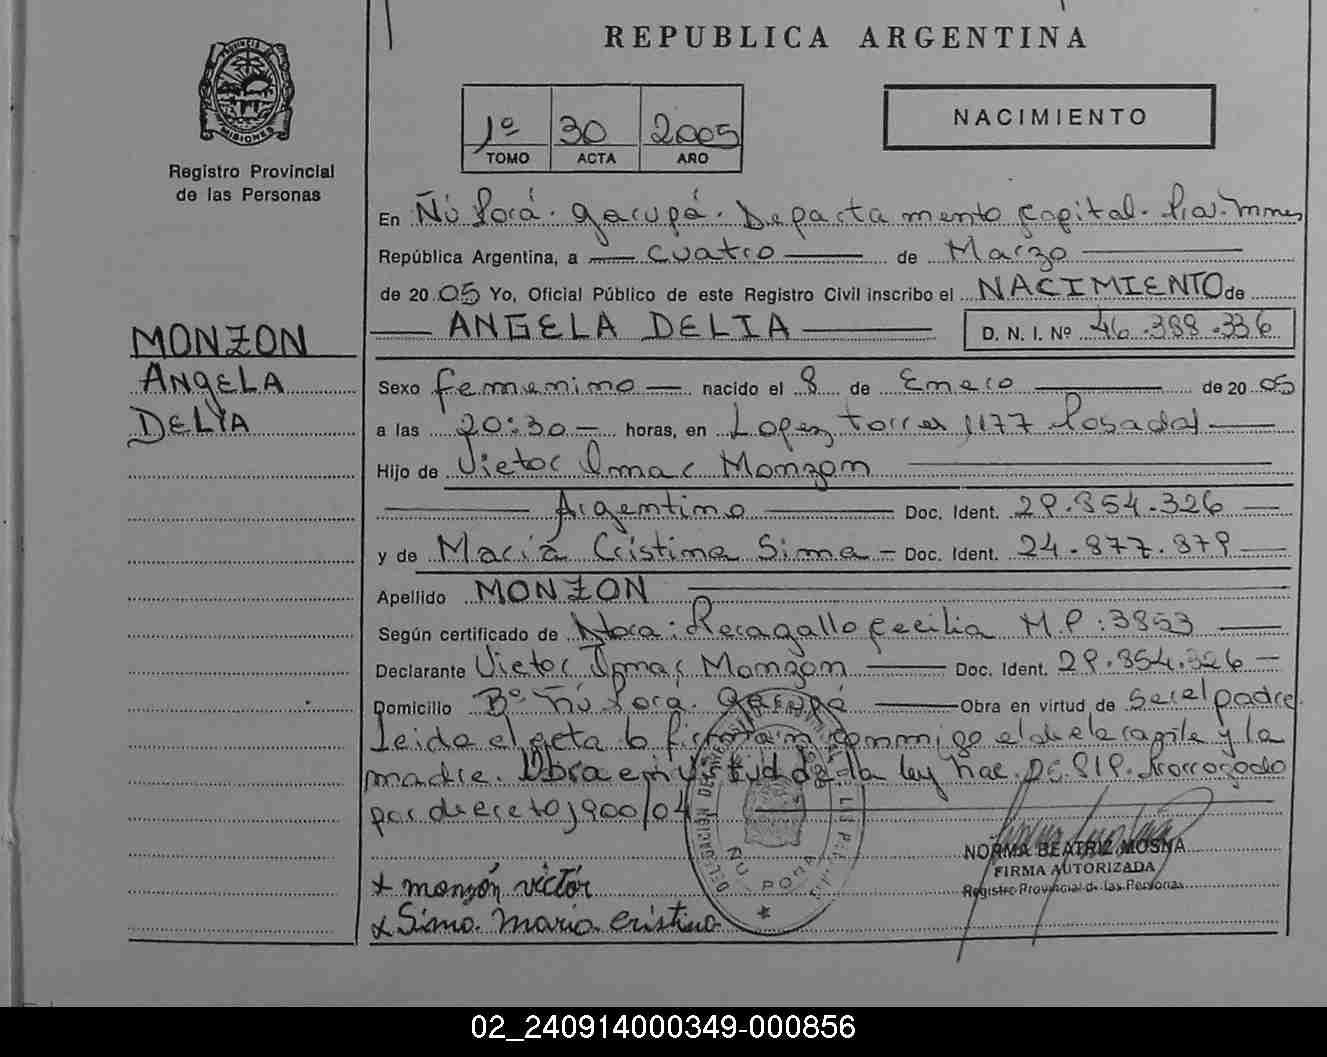 REPUBLICA ARGENTINA
PROVINCIA DE
MISIONES
Registro Provincial
de las Personas
1º 30 2005
TOMO ACTA AÑO
NACIMIENTO
En Ñú Porá. Garupá. Departamento Capital. Mnes
República Argentina, a cuatro de Marzo
de 2005 Yo, Oficial Público de este Registro Civil inscribo el NACIMIENTO de
ANGELA DELIA D. N. I. Nº 46.388.336
MONZON
ANgELA
DELIA
Sexo femenino nacido el 8 de Enero de 2005
a las 20:30 horas, en Lopez torres 1177 Posadas
Hijo de Victor Omar Monzon
Argentino Doc. Ident. 29.854.326
y de Maria Cristina Sima Doc. Ident. 24.877.879
Apellido MONZON
Según certificado de Recagallo Cecilia M.P: 3853
Declarante Victor Omar Monzon Doc. Ident. 29.854.326
Domicilio Bº Ñú Porá. Garupá Obra en virtud de Ser el padre
Leida el acta la firman conmigo el declarante y la
madre. Obra en virtud de la ley nac. 25.819. Prorrogado
por decreto 1900/04
DELEGACION DEL REGISTRO PROVINCIAL DE LAS
ÑU PORA
NORMA BEATRIZ MOSNA
FIRMA AUTORIZADA
Registro Provincial de las Personas
x monzón víctor
x Sima. maria cristina
02_240914000349-000856